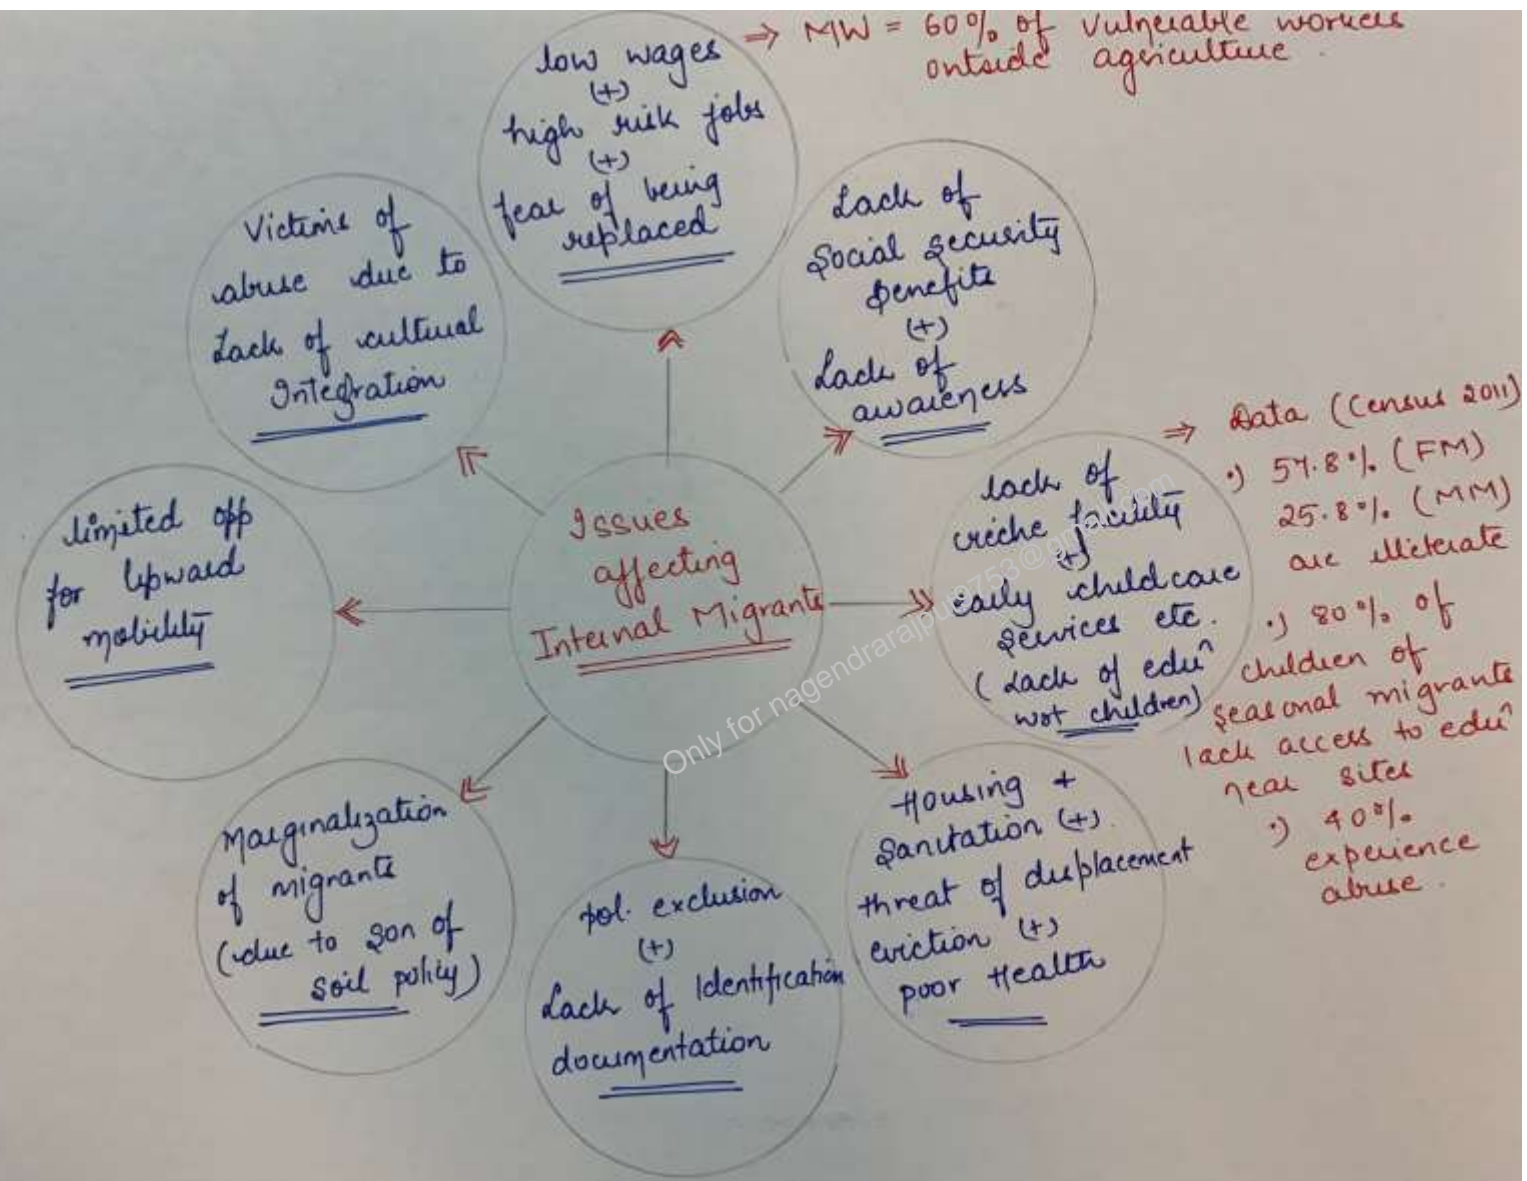 Issues
affecting
Internal Migrants
low wages
(+)
high risk jobs
(+)
fear of being
replaced
⇒ MW = 60% of vulnerable workers
outside agriculture.
Lack of
Social Security
Benefits
(+)
Lack of
awareness
lack of
crèche facility
(+)
early childcare
services etc.
(Lack of eduⁿ
wrt children)
⇒ Data (Census 2011)
•) 57.8% (FM)
25.8% (MM)
are illiterate
•) 80% of
children of
seasonal migrants
lack access to eduⁿ
near sites
•) 40%
experience
abuse.
Housing +
Sanitation (+)
threat of displacement
eviction (+)
poor Health
pol. exclusion
(+)
Lack of Identification
documentation
Marginalization
of migrants
(due to son of
soil policy)
limited opp
for Upward
mobility
Victims of
abuse due to
Lack of cultural
Integration